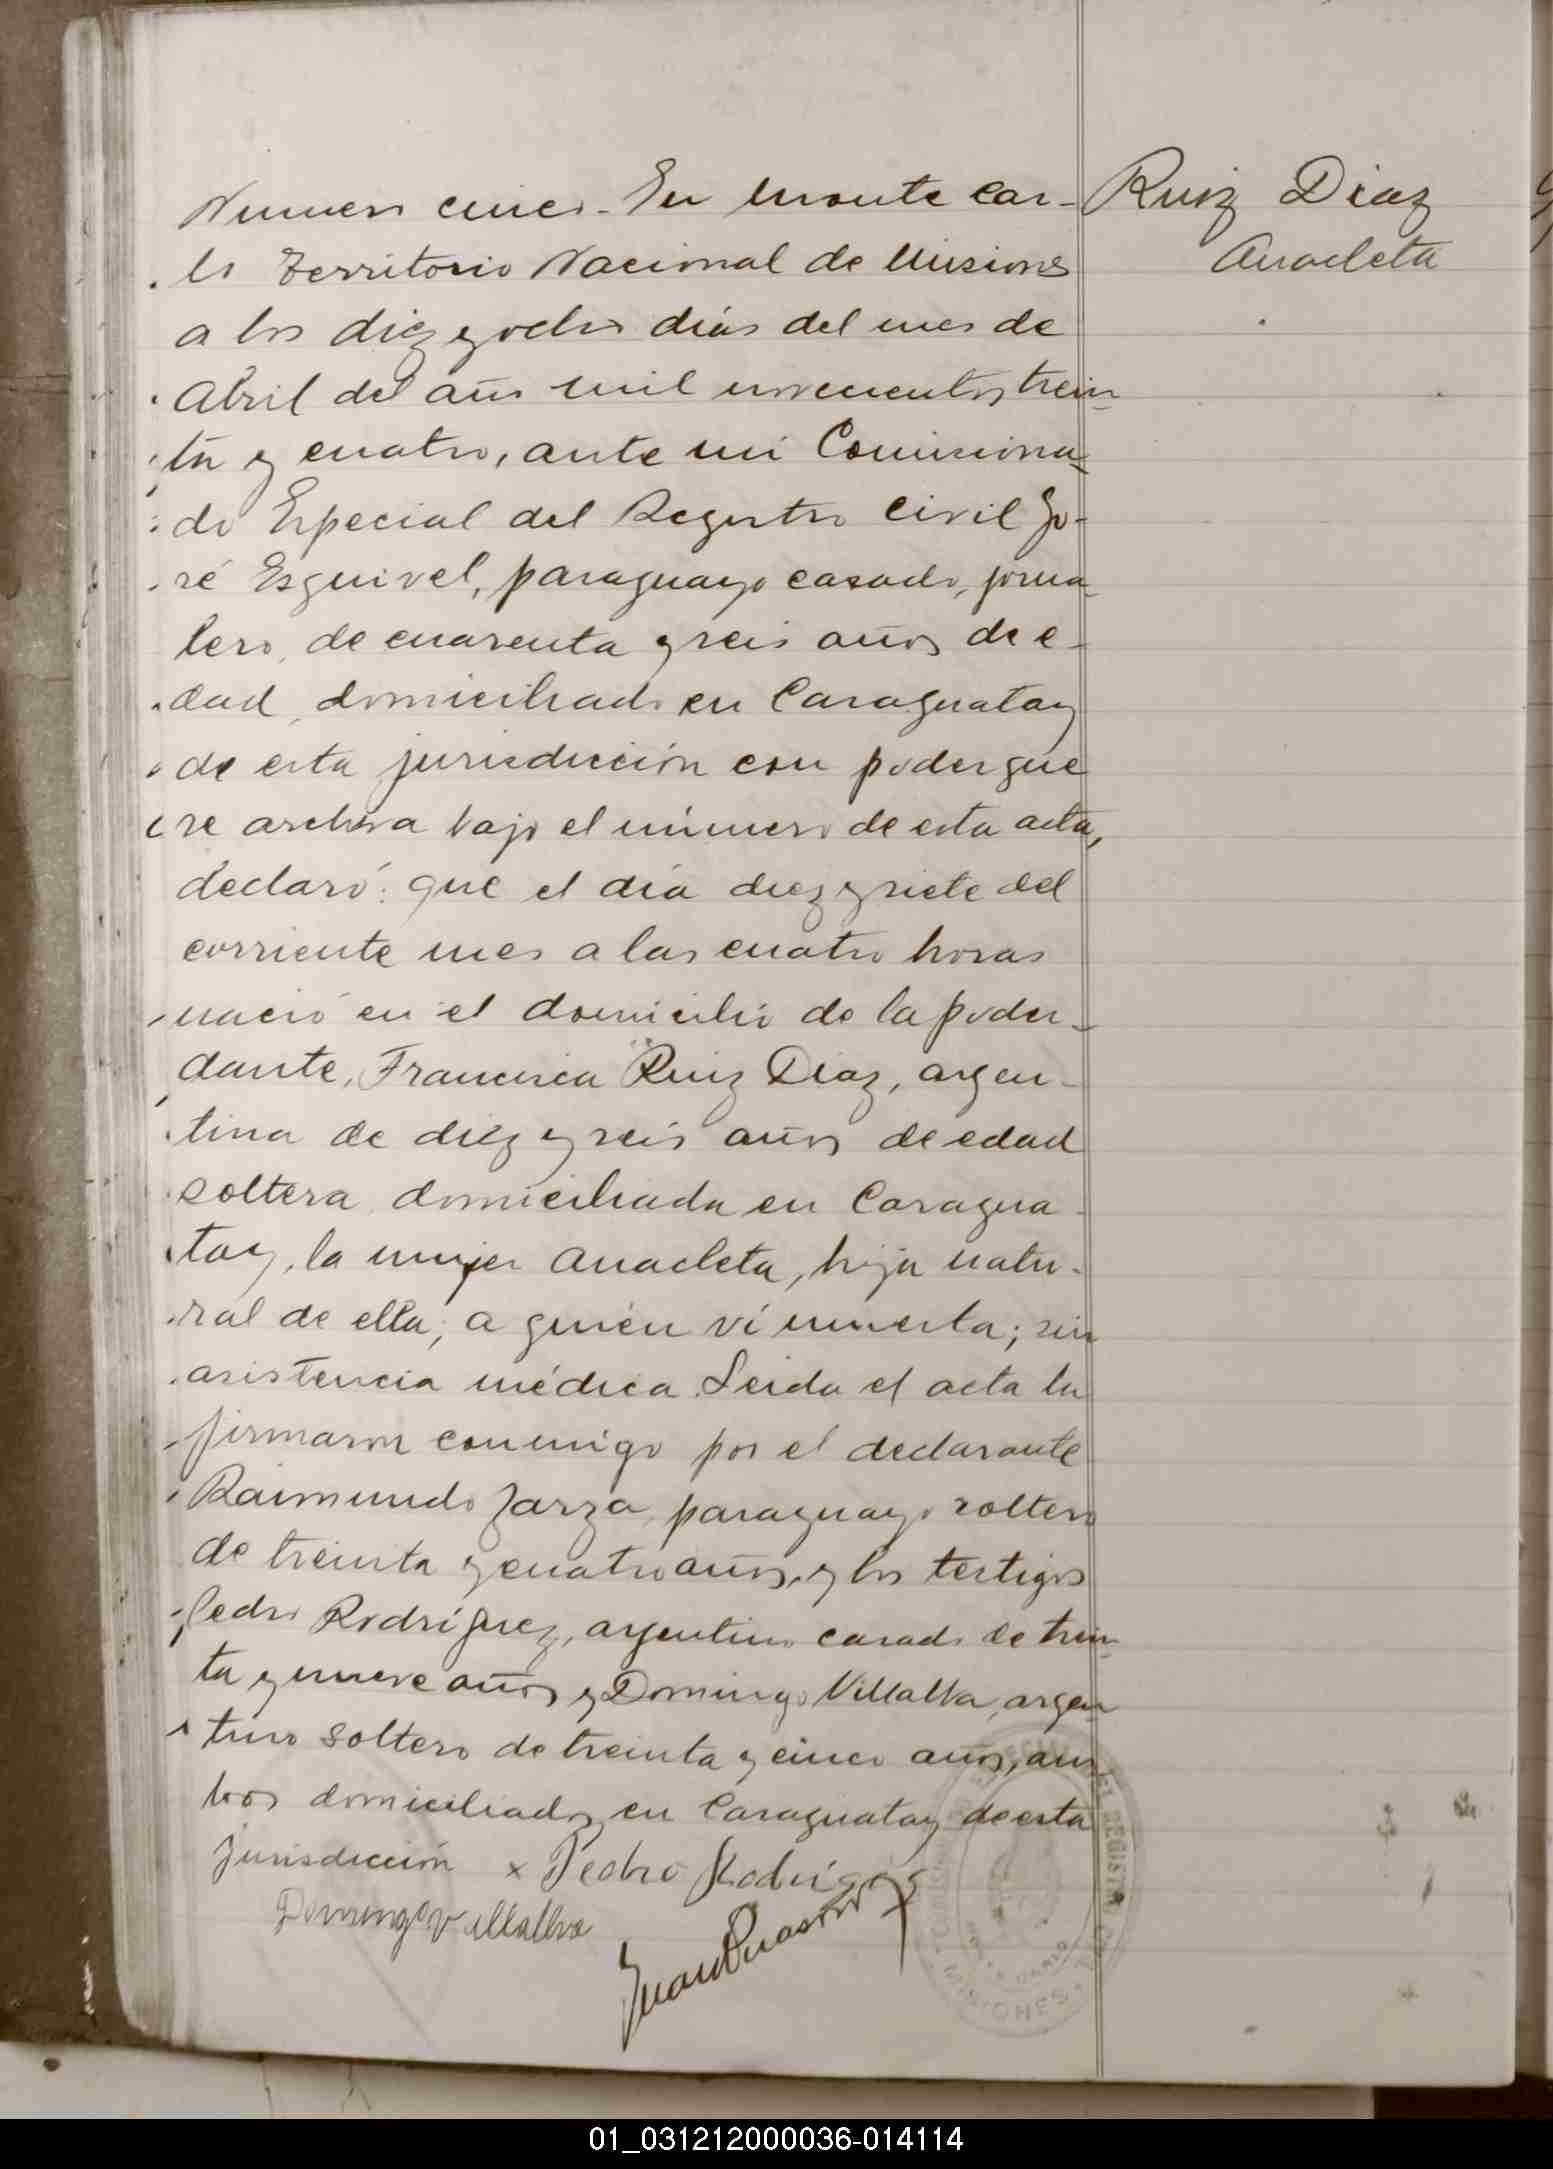 Numero cinco. En Monte Car-
lo Territorio Nacional de Misiones
a los diez y ocho días del mes de
Abril del año mil novecientos trein-
ta y cuatro, ante mi Comisiona-
do Especial del Registro Civil Jo-
sé Esquivel, paraguayo casado, jorna-
lero, de cuarenta y seis años de e-
dad, domiciliado en Caraguatay
de esta jurisdicción con poder que
se archiva bajo el número de esta acta,
declaró: que el día diez y siete del
corriente mes a las cuatro horas
nació en el domicilio de la poder-
dante, Francisca Ruiz Diaz, argen-
tina de diez y seis años de edad
soltera domiciliada en Caragua-
tay, la mujer Anacleta, hija natu-
ral de ella; a quién ví muerta; sin
asistencia médica. Leida el acta la
firmaron conmigo por el declarante
Raimundo Jarza, paraguayo soltero
de treinta y cuatro años, y los testigos
Pedro Rodríguez, argentino casado de trein-
ta y nueve años y Domingo Villalba, argen-
tino soltero de treinta y cinco años, am-
bos domiciliados en Caraguatay de esta
jurisdicción x Pedro Rodriguez
Domingo Villalba
Juan
Ruiz Diaz
Anacleta
MISIONES
01_031212000036-014114